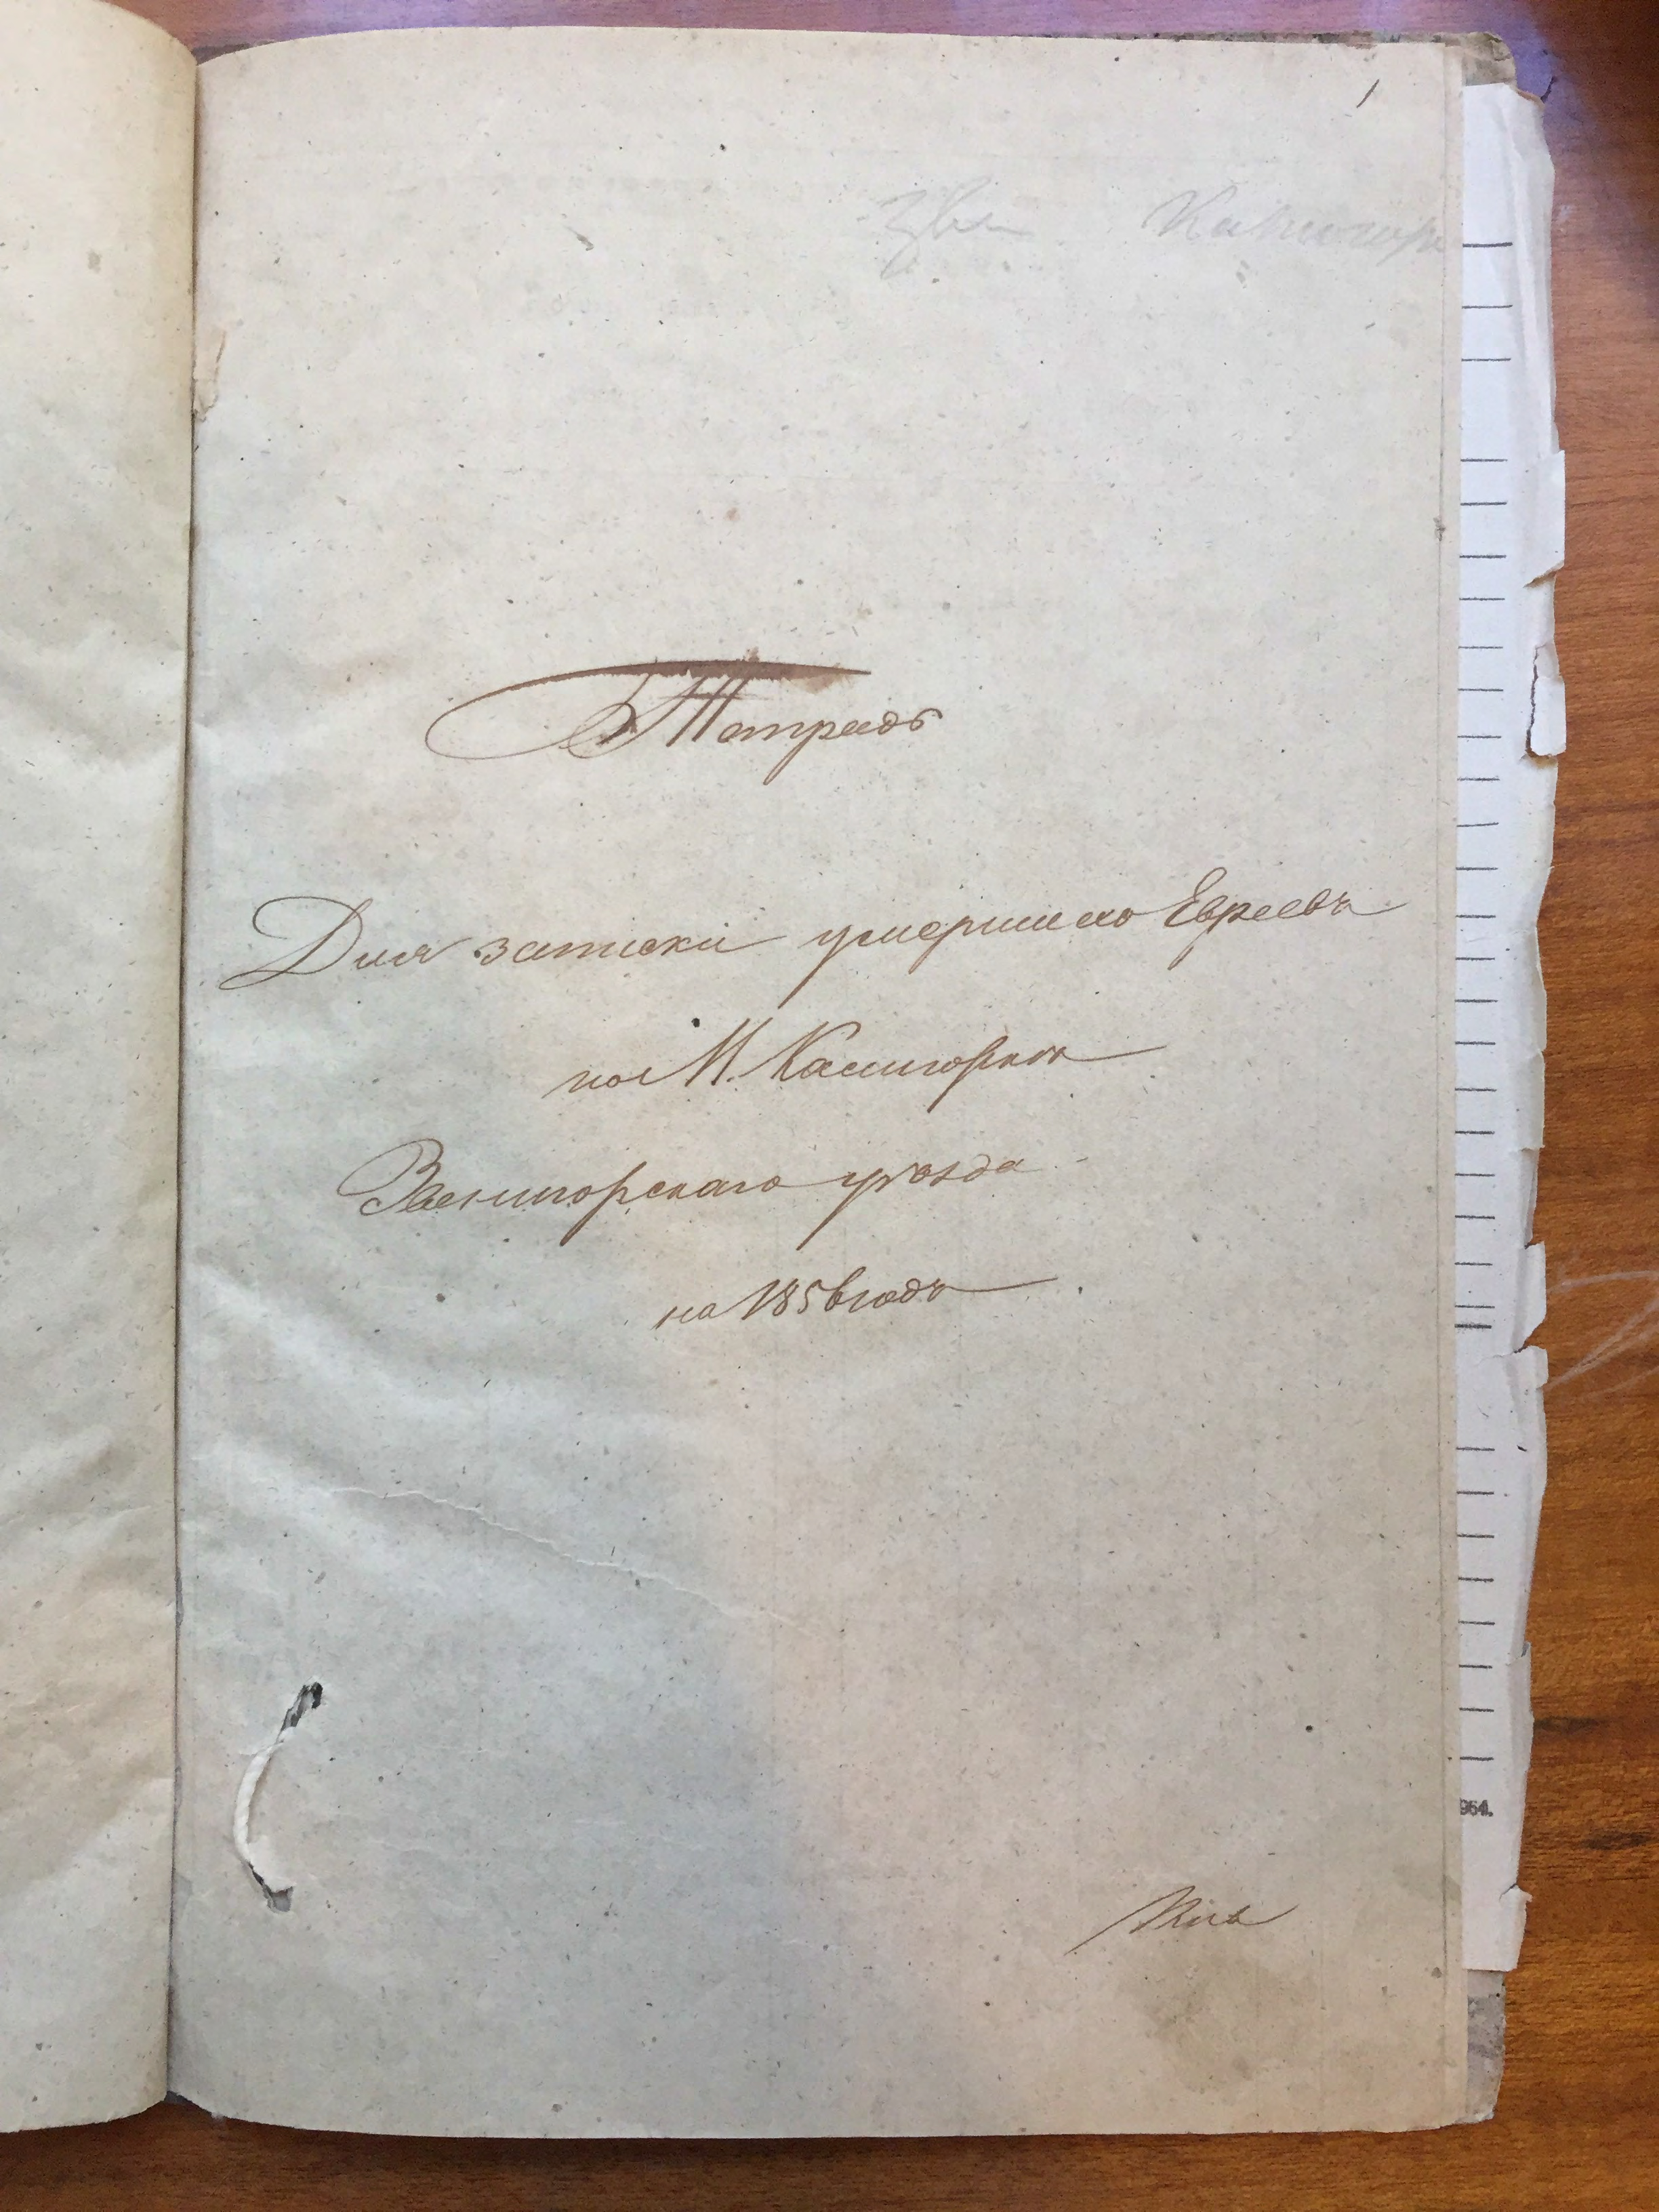 1
Зве Калигор
Тетрадь
Для записки умершихъ Евреевъ
по М. Калигоркѣ
Звенигорскаго уѣзда
на 1856 годъ
954.